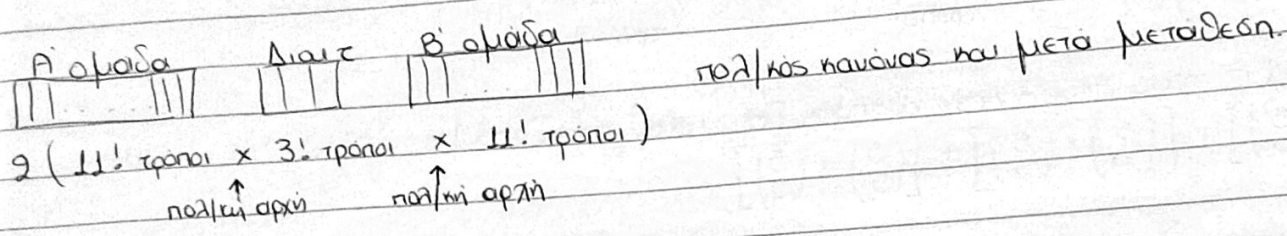 Α' ομάδα Διαιτ Β' ομάδα
πολ/κός κανόνας και μετά μετάθεση.
2 ( 11! τρόποι x 3! τρόποι x 11! τρόποι )
πολ/κή αρχή πολ/κή αρχή